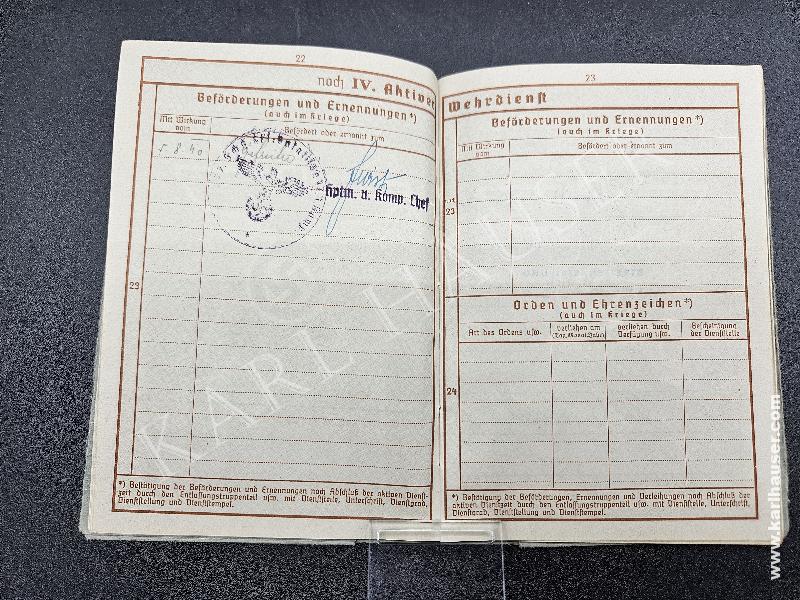 22
noch IV. Aktiver
Beförderungen und Ernennungen*)
(auch im Kriege)
Mit Wirkung
vom
Befördert oder ernannt zum
5.8.40
Hptm. u. Komp. Chef
23
*) Bestätigung der Beförderungen und Ernennungen nach Abschluß der aktiven Dienst-
zeit durch den Entlassungstruppenteil usw. mit Dienststelle, Unterschrift, Dienstgrad,
Dienststellung und Dienststempel.
23
Wehrdienst
Beförderungen und Ernennungen*)
(auch im Kriege)
Mit Wirkung
vom
Befördert oder ernannt zum
23
Orden und Ehrenzeichen*)
(auch im Kriege)
Art des Ordens usw.
verliehen am
(Tag, Monat, Jahr)
verliehen durch
Verfügung usw.
Bescheinigung
der Dienststelle
24
*) Bestätigung der Beförderungen, Ernennungen und Verleihungen nach Abschluß der
aktiven Dienstzeit durch den Entlassungstruppenteil usw. mit Dienststelle, Unterschrift,
Dienstgrad, Dienststellung und Dienststempel.
KARL HAUSER
www.karlhauser.com